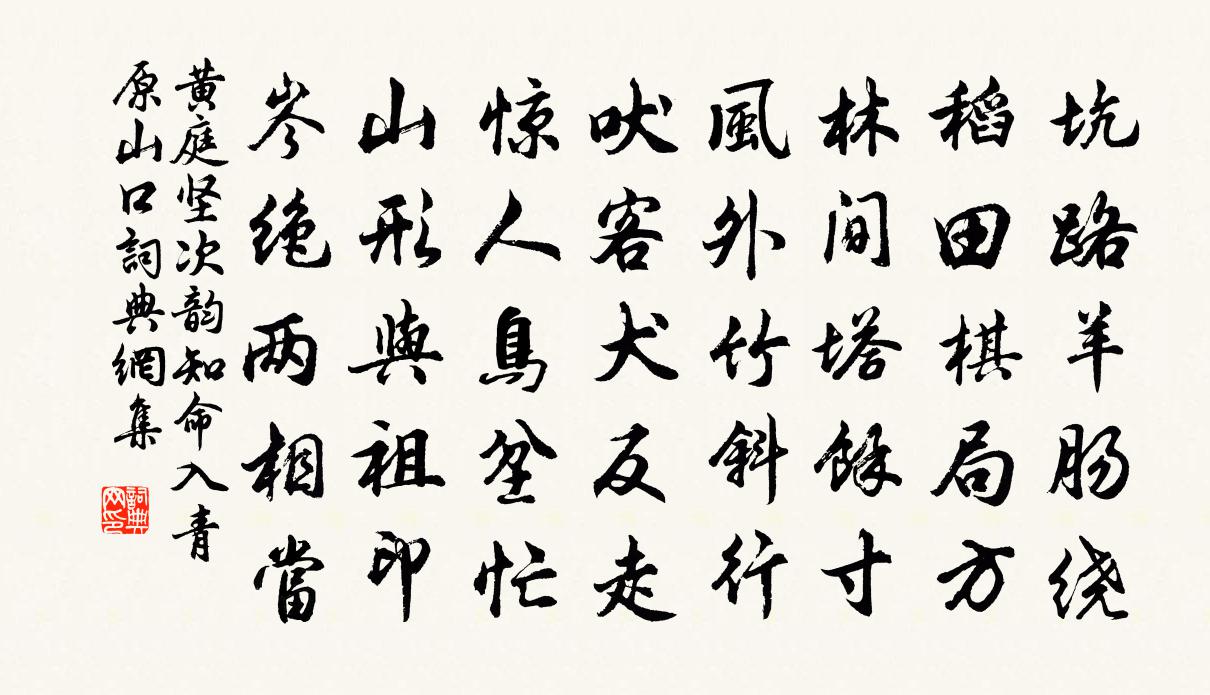 坑路羊肠绕
稻田棋局方
林間塔餘寸
風外竹斜行
吠客犬反走
惊人鳥坌忙
山形與祖印
岑绝两相當
黄庭坚次韵知命入青
原山口詞典網集
詞典网印